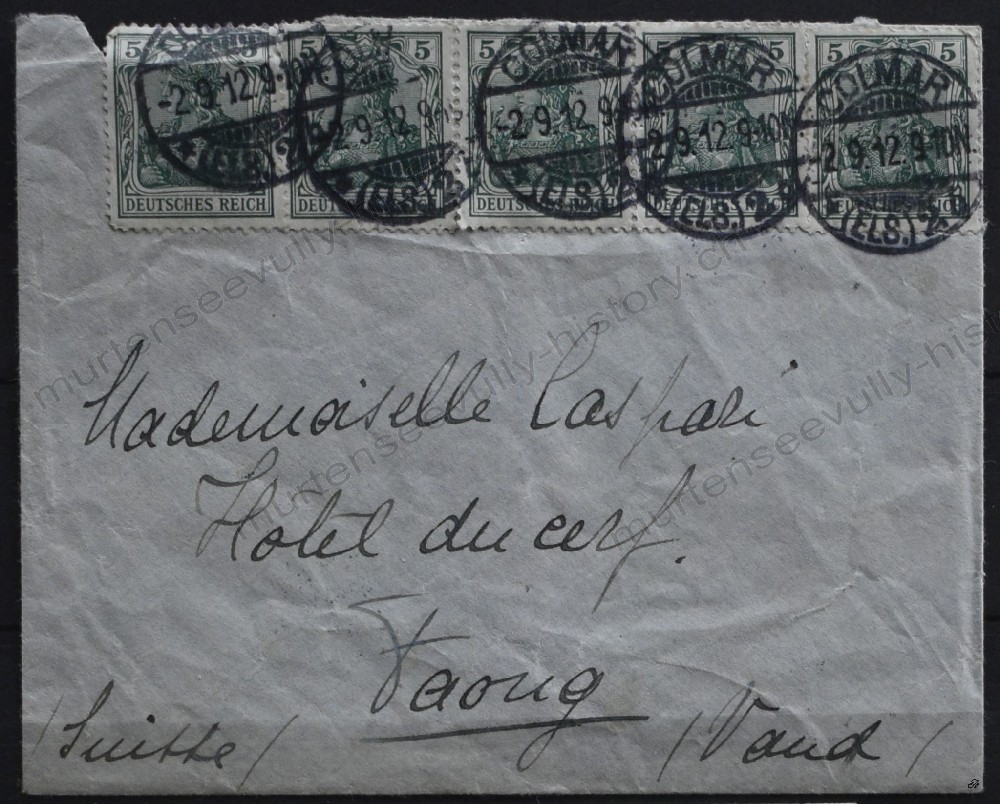 5 5 5 5 5 5 5 5 5
COLMAR COLMAR COLMAR COLMAR
-2.9.12.9-10N. 2.9.12.9-10 -2.9.12.9 2.9.12.9-10N. -2.9.12.9-10N.
*(ELS.)2a (ELS.)2 (ELS.)2 (ELS.)2a (ELS.)2a
DEUTSCHES REICH DEUTSCHES REICH DEUTSCHES REICH DEUTSCHES REICH DEUTSCHES REICH
Mademoiselle Caspari
Hôtel du cerf.
Faoug
(Suisse) (Vaud)
murtenseevully-history.ch
murtenseevully-history.ch
murtenseevully-history